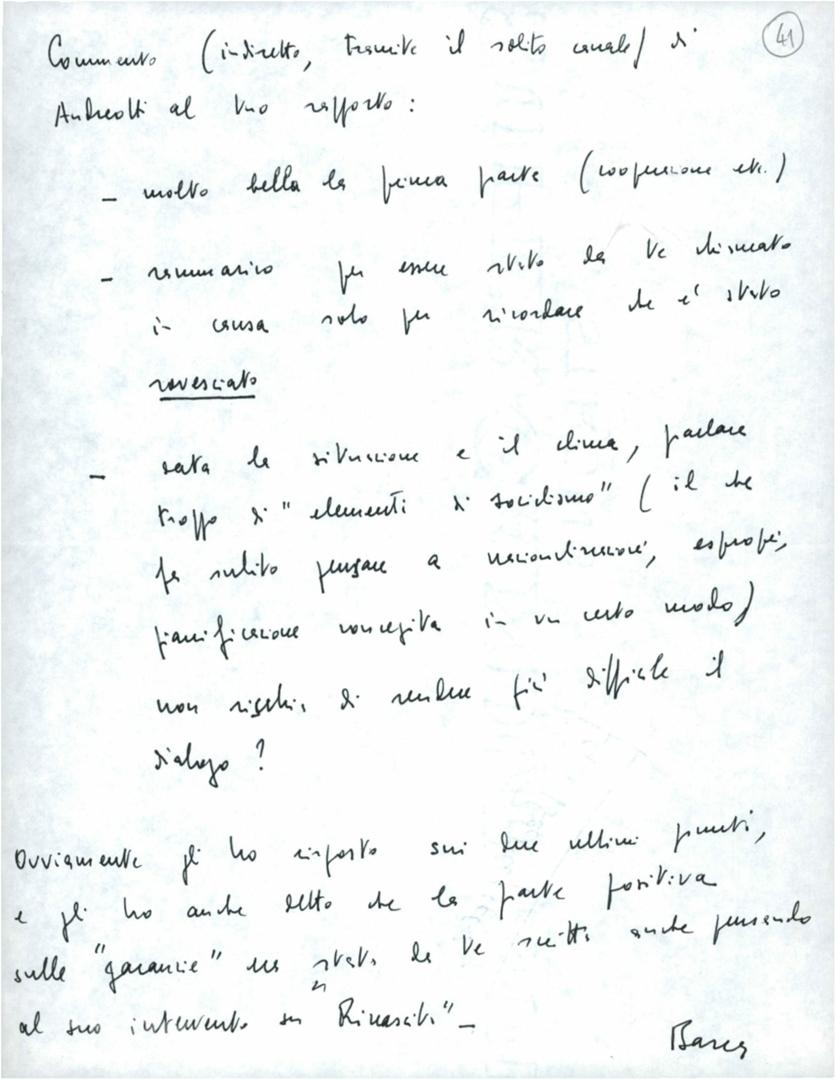 41
Commento (indiretto, tramite il solito canale) di
Andreotti al tuo rapporto:
- molto bella la prima parte (cooperazione etc.)
- rammarico per essere stato da te chiamato
in causa solo per ricordare che e' stato
rovesciato
- data la situazione e il clima, parlare
troppo di "elementi di socialismo" (il che
fa subito pensare a nazionalizzazioni, espropri,
pianificazione concepita in un certo modo)
non rischia di rendere più difficile il
dialogo?
Ovviamente gli ho risposto sui due ultimi punti,
e gli ho anche detto che la parte positiva
sulle "garanzie" era stata da te scritta anche pensando
al suo intervento su "Rinascita"-
Barca